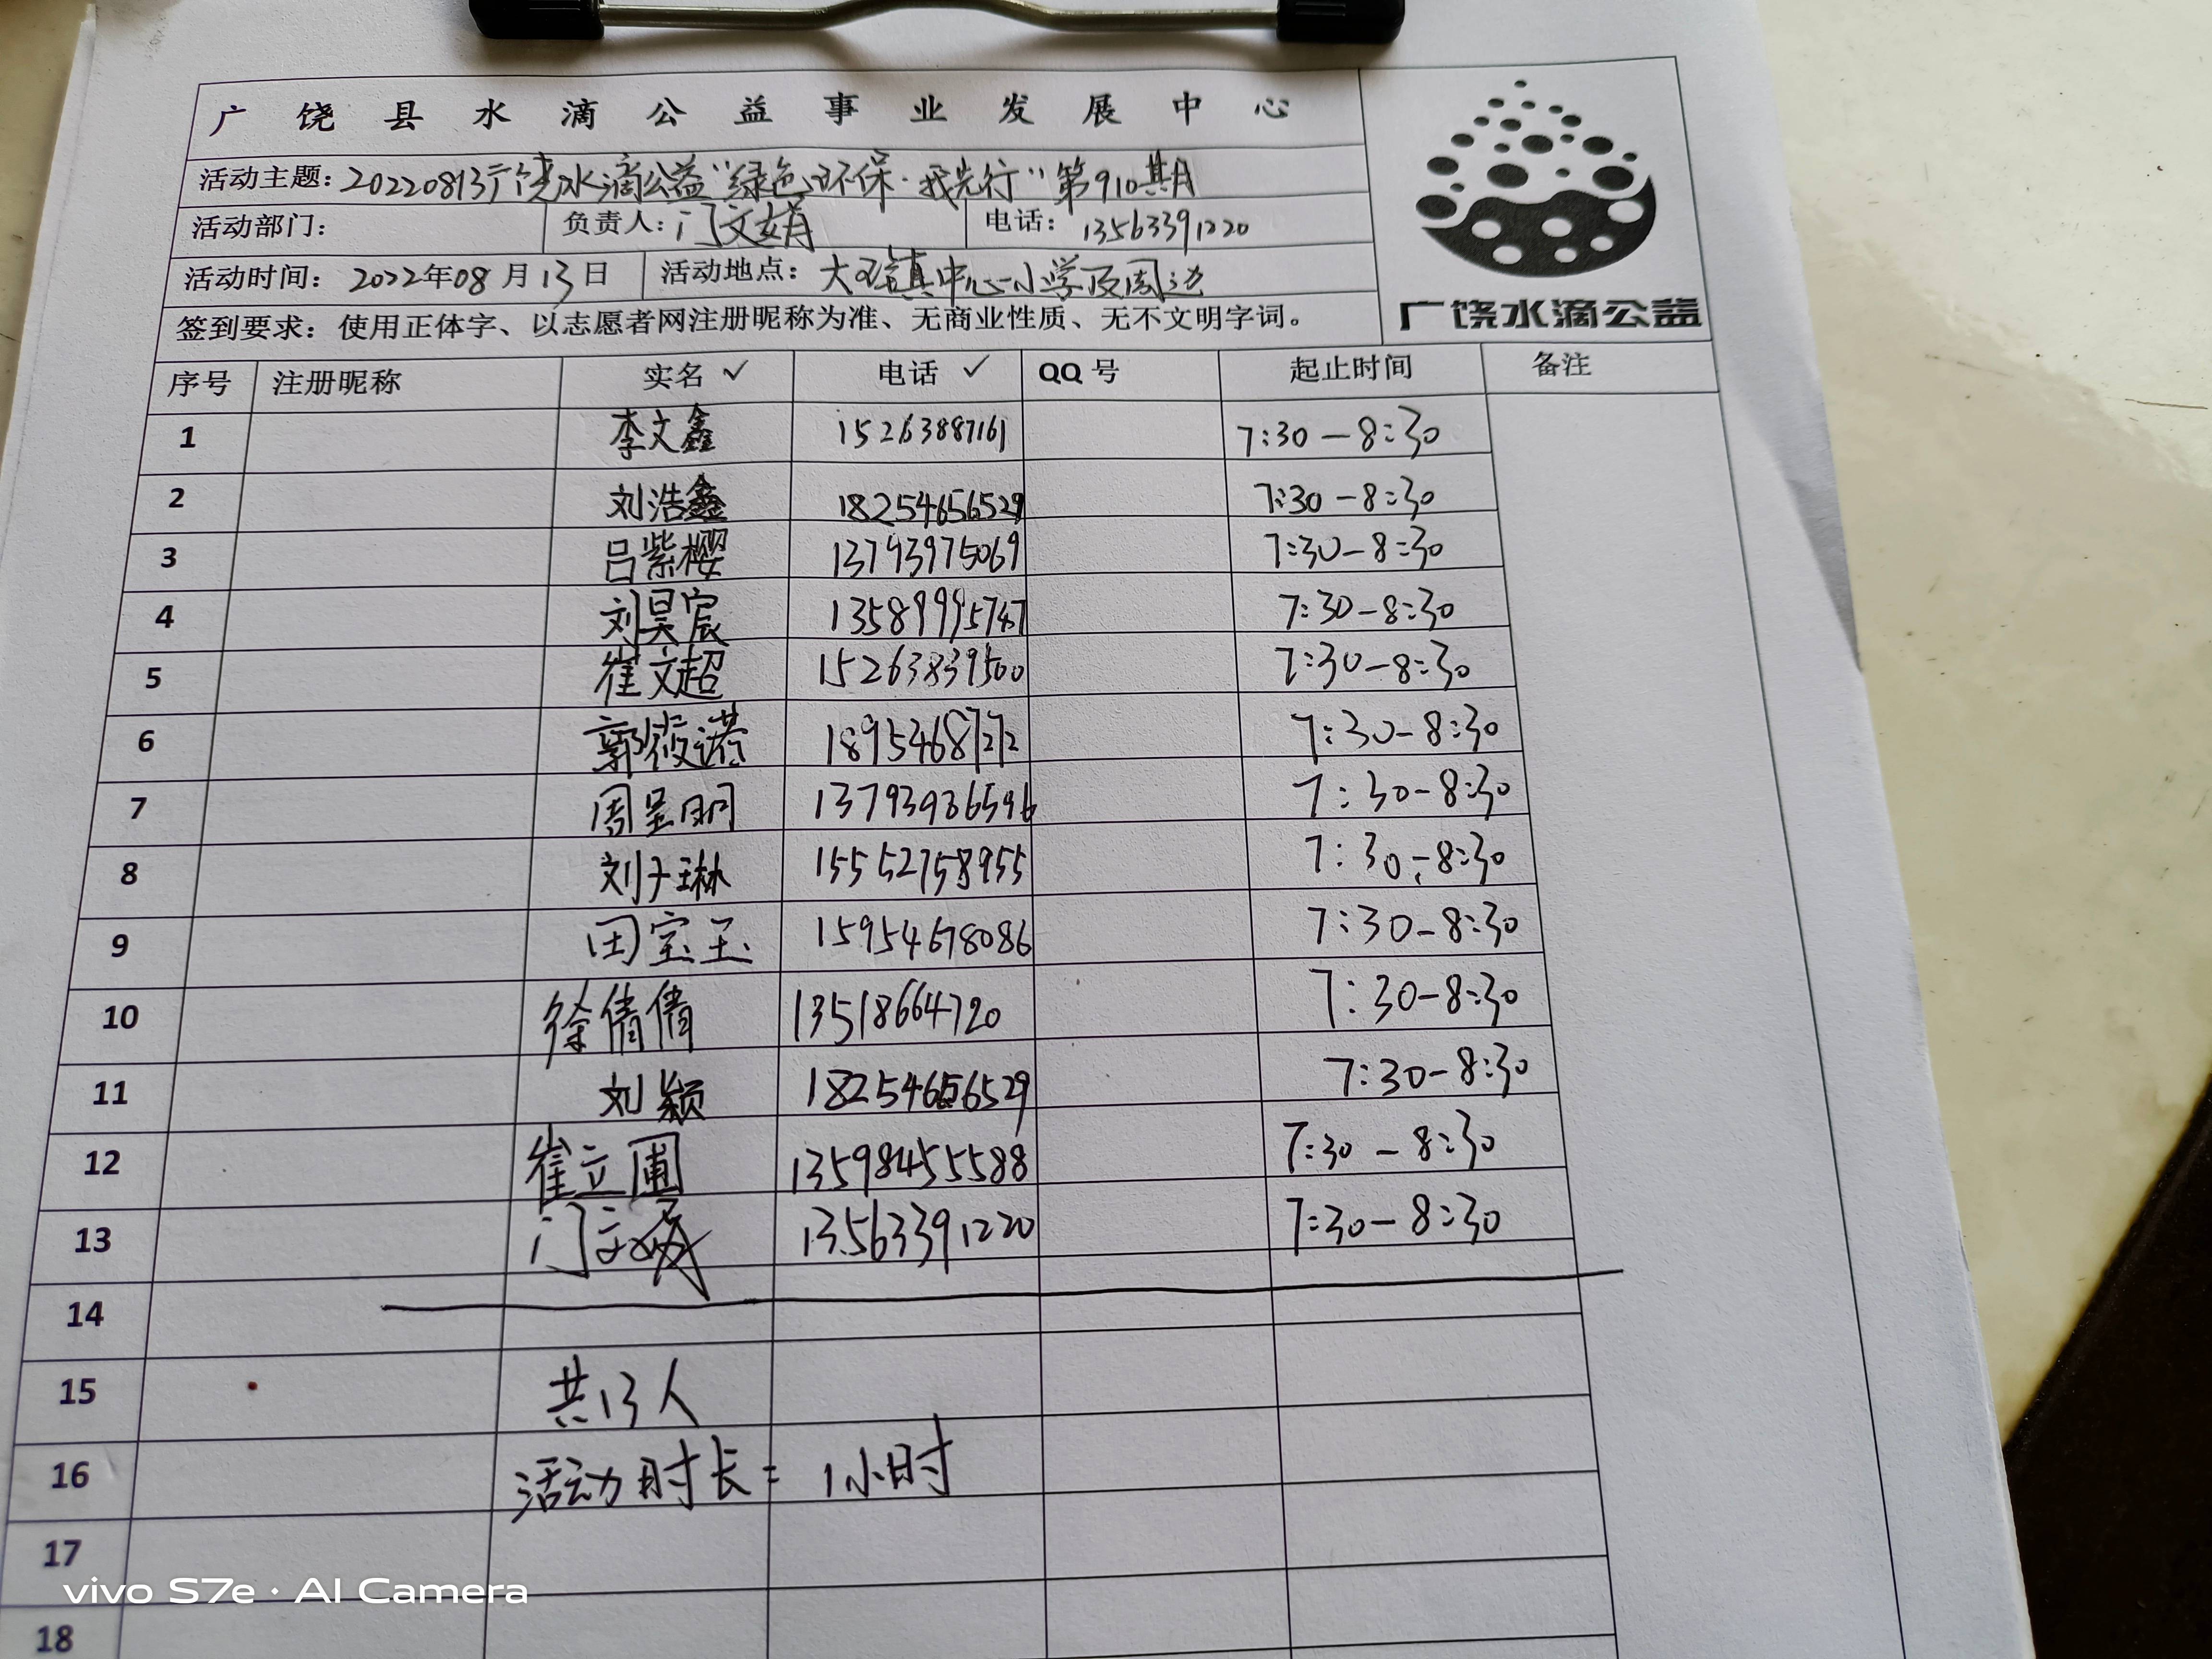 广饶县水滴公益事业发展中心
活动主题：20220813广饶水滴公益“绿色环保·我先行”第910期
活动部门： 负责人：门文娟 电话：13563391220
活动时间：2022年08月13日 活动地点：大王镇中心小学及周边
签到要求：使用正体字、以志愿者网注册昵称为准、无商业性质、无不文明字词。
广饶水滴公益
序号 注册昵称 实名 ✓ 电话 ✓ QQ 号 起止时间 备注
1 李文鑫 15263887161 7:30-8:30
2 刘浩鑫 18254656529 7:30-8:30
3 吕紫樱 13793975069 7:30-8:30
4 刘昊宸 13589995747 7:30-8:30
5 崔文超 15263839500 7:30-8:30
6 郭筱诺 18954687272 7:30-8:30
7 周呈明 13793986596 7:30-8:30
8 刘子琳 15552758955 7:30-8:30
9 田宝玉 15954678086 7:30-8:30
10 徐倩倩 13518664720 7:30-8:30
11 刘颖 18254656529 7:30-8:30
12 崔立圃 13598455588 7:30-8:30
13 门文娟 13563391220 7:30-8:30
14
15 共13人
16 活动时长：1小时
17
vivo S7e · AI Camera
18